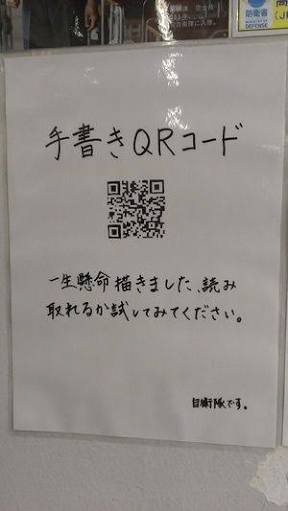 防衛省
MINISTRY OF
DEFENSE
手書きQRコード
一生懸命描きました、読み
取れるか試してみてください。
自衛隊です。